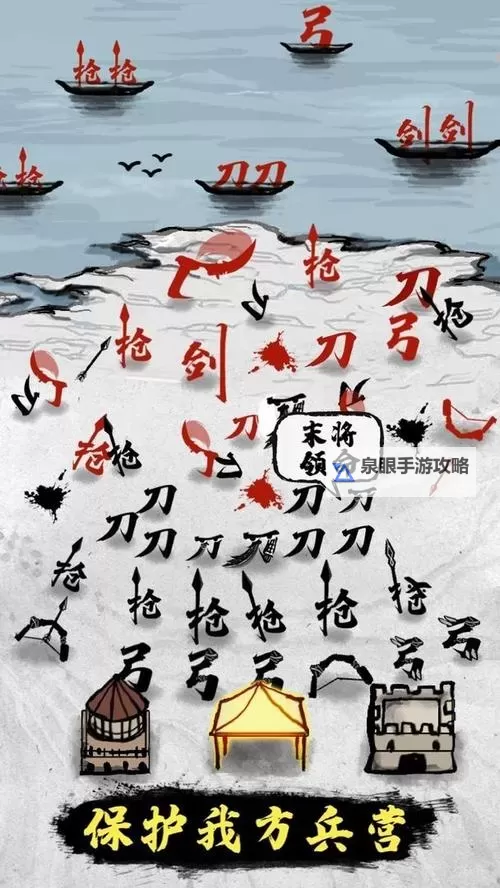 弓
枪 枪
剑 剑
枪 枪
刀 刀
枪
刀
枪
枪
弓
剑
刀
刀
枪
枪
末将
领命
泉眼手游攻略
刀
刀 刀
刀 刀 刀 刀 刀
枪
枪 枪 枪 枪
枪
弓 弓 弓 弓 弓
保护我方兵营